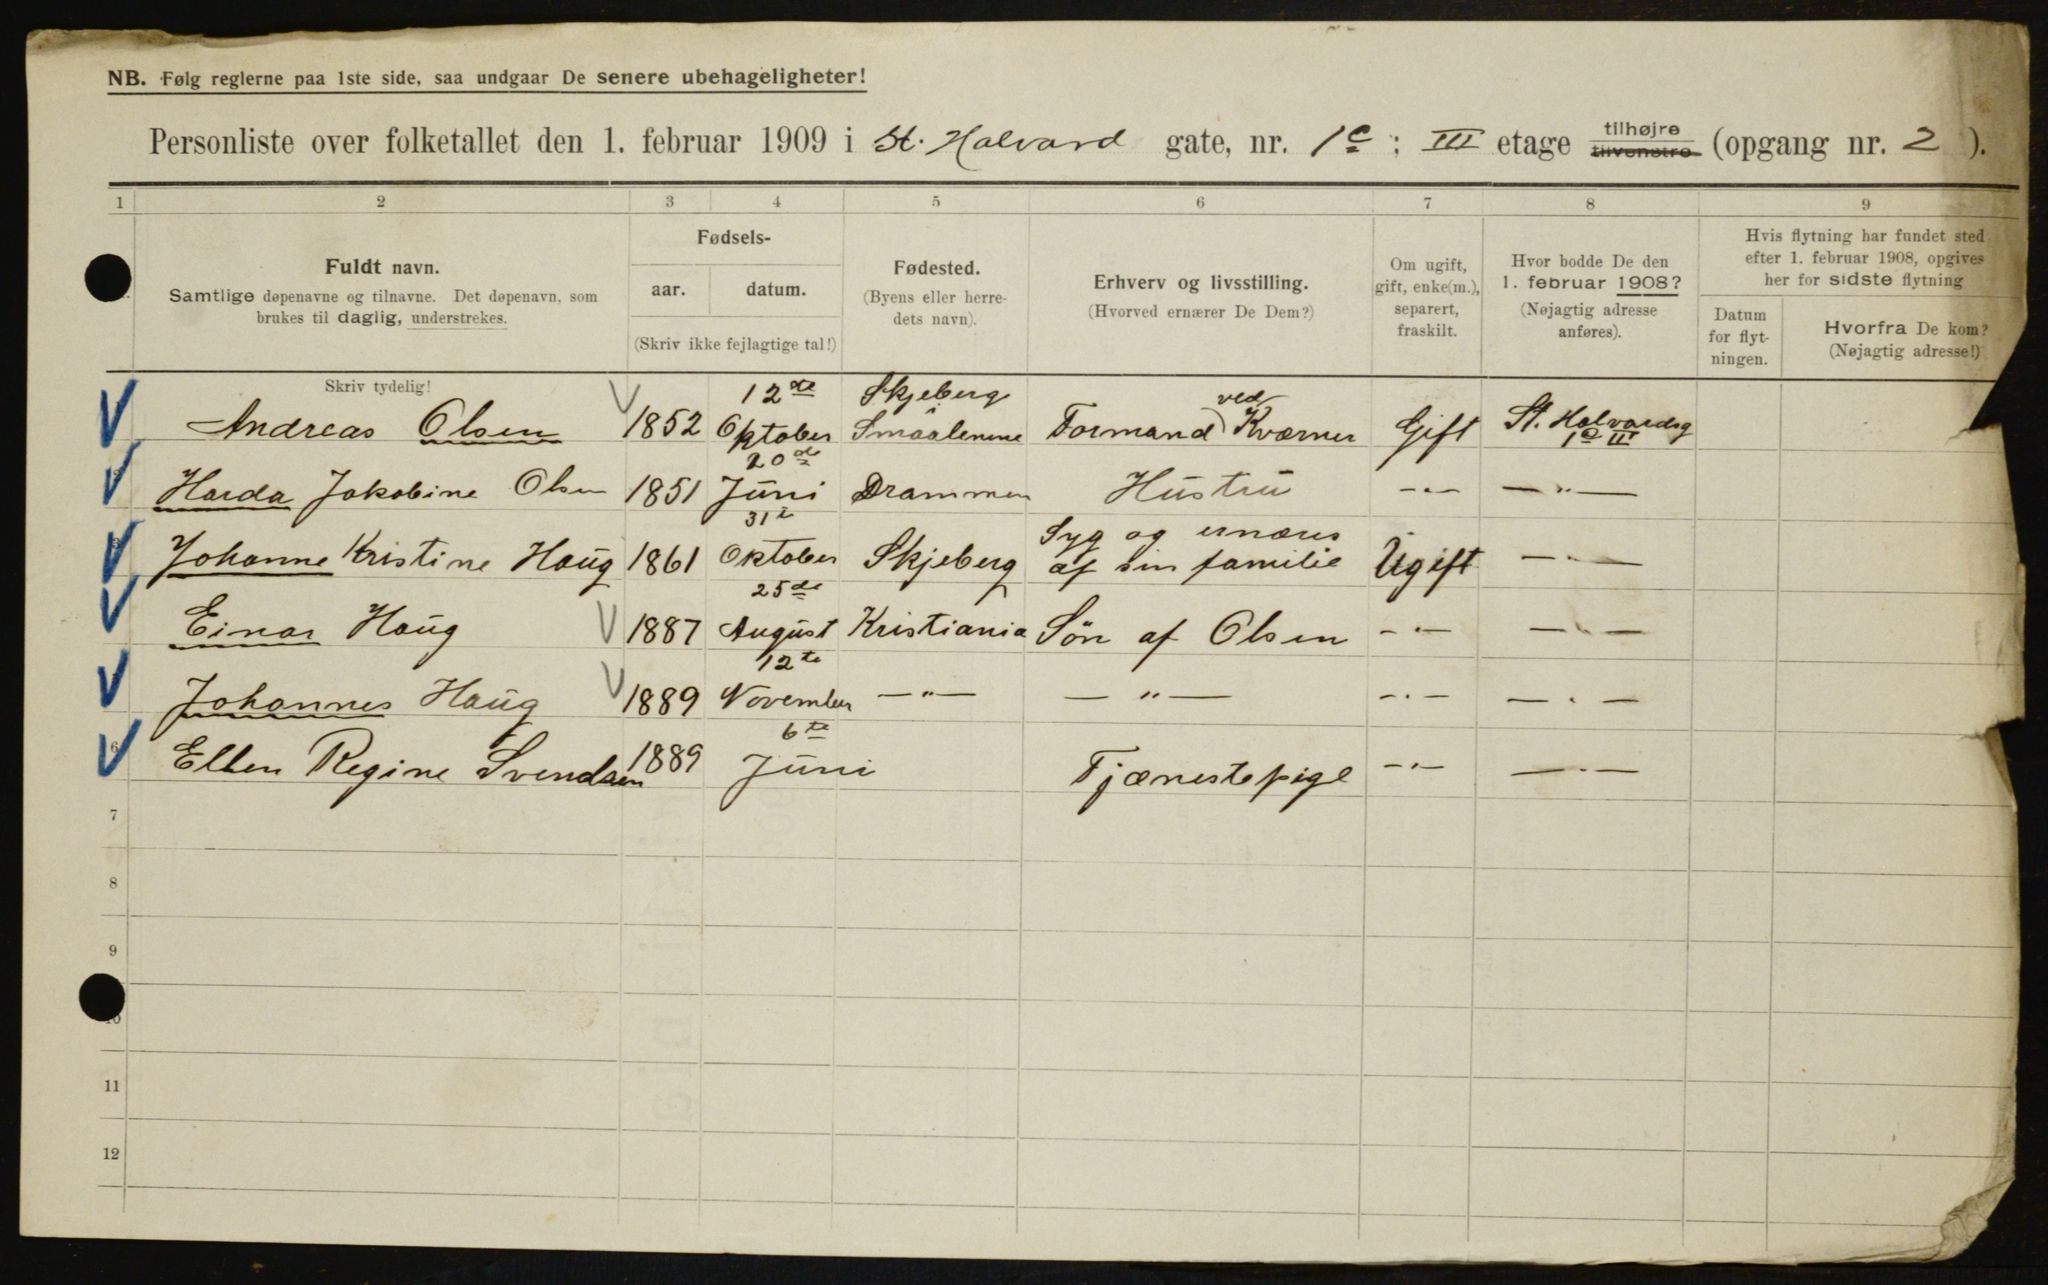 NB. Følg reglerne paa 1ste side, saa undgaar De senere ubehageligheter!
Personliste over folketallet den 1. februar 1909 i St. Halvard gate, nr. 1c; III etage tilhøjre tilvenstre (opgang nr. 2).
1 2 3 4 5 6 7 8 9
Fuldt navn.
Samtlige døpenavne og tilnavne. Det døpenavn, som
brukes til daglig, understrekes.
Fødsels-
aar. datum.
(Skriv ikke fejlagtige tal!)
Fødested.
(Byens eller herre-
dets navn).
Erhverv og livsstilling.
(Hvorved ernærer De Dem?)
Om ugift,
gift, enke(m.),
separert,
fraskilt.
Hvor bodde De den
1. februar 1908?
(Nøjagtig adresse
anføres).
Hvis flytning har fundet sted
efter 1. februar 1908, opgives
her for sidste flytning
Datum
for flyt-
ningen.
Hvorfra De kom?
(Nøjagtig adresse!)
Skriv tydelig!
12de Skjeberg ved
Andreas Olsen 1852 Oktober Smaalenene Formand Kværner Gift St. Halvardsg
1c II
20de
Harda Jakobine Olsen 1851 Juni Drammen Hustru —"— —"—
31te Syg og ernæres
Johanne Kristine Haug 1861 Oktober Skjeberg af sin familie Ugift —"—
25de
Einar Haug 1887 August Kristiania Søn af Olsen —"— —"—
12te
Johannes Haug 1889 November —"— —"— —"— —"—
6te
6 Ellen Regine Svendsen 1889 Juni Tjænestepige —"— —"—
7
8
9
10
11
12